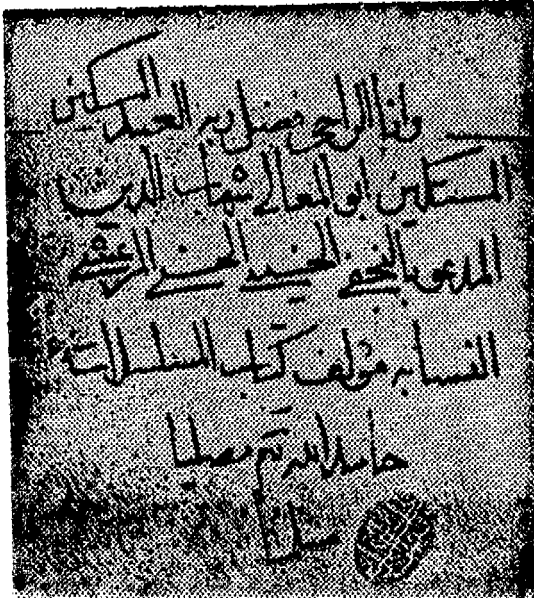 وانا الراجي فضل ربه العبد المسكين
المستكين ابو المعالي شهاب الدين
المدعو بالنجفي الحسيني الحسني المرعشي
النسابه مؤلف كتاب المسلسلات
حامدا لله تع مصليا
مسلما